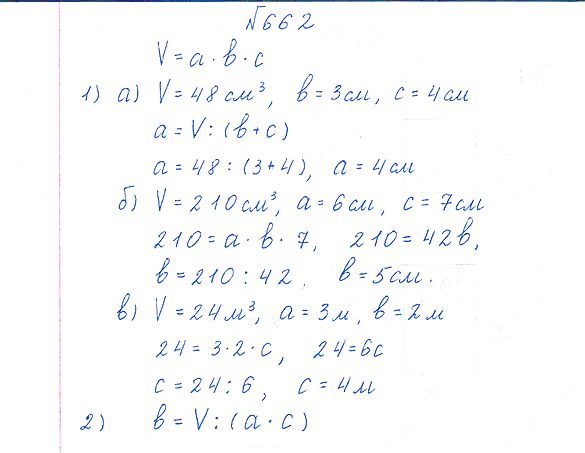 №662
V = a · b · c
1) а) V = 48 см³, b = 3 см, c = 4 см
a = V : (b + c)
a = 48 : (3 + 4), a = 4 см
б) V = 210 см³, a = 6 см, c = 7 см
210 = a · b · 7, 210 = 42b,
b = 210 : 42, b = 5 см.
в) V = 24 м³, a = 3 м, b = 2 м
24 = 3 · 2 · c, 24 = 6c
c = 24 : 6, c = 4 м
2) b = V : (a · c)